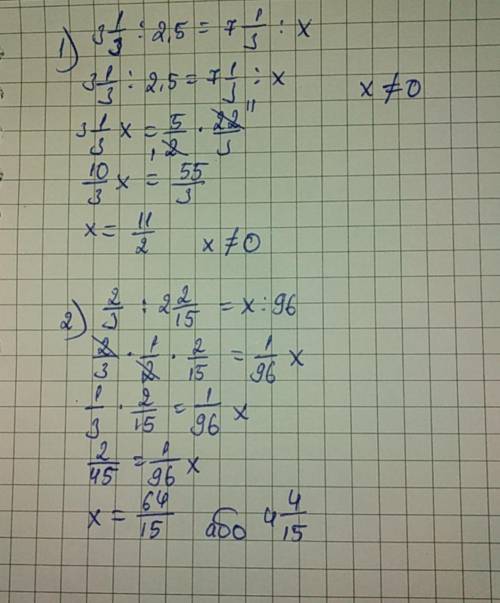 1) 3 1/3 : 2,5 = 7 1/3 : x
3 1/3 : 2,5 = 7 1/3 : x x ≠ 0
3 1/3 x = 5/2 · 22/3 11
1
10/3 x = 55/3
x = 11/2 x ≠ 0
2) 2/3 : 2 2/15 = x : 96
2/3 · 1/2 · 2/15 = 1/96 x
1/3 · 2/15 = 1/96 x
2/45 = 1/96 x
x = 64/15 або 4 4/15